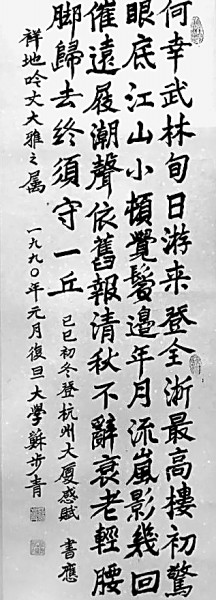 何幸武林旬日游来登全浙最高樓初驚
眼底江山小頓覺鬢邊年月流嵐影幾回
催遠屐潮聲依舊報清秋不辭衰老輕腰
脚歸去終須守一丘 己巳初冬登杭州大厦感賦 書應
祥地吟丈大雅之属 一九九〇年元月復旦大學蘇步青